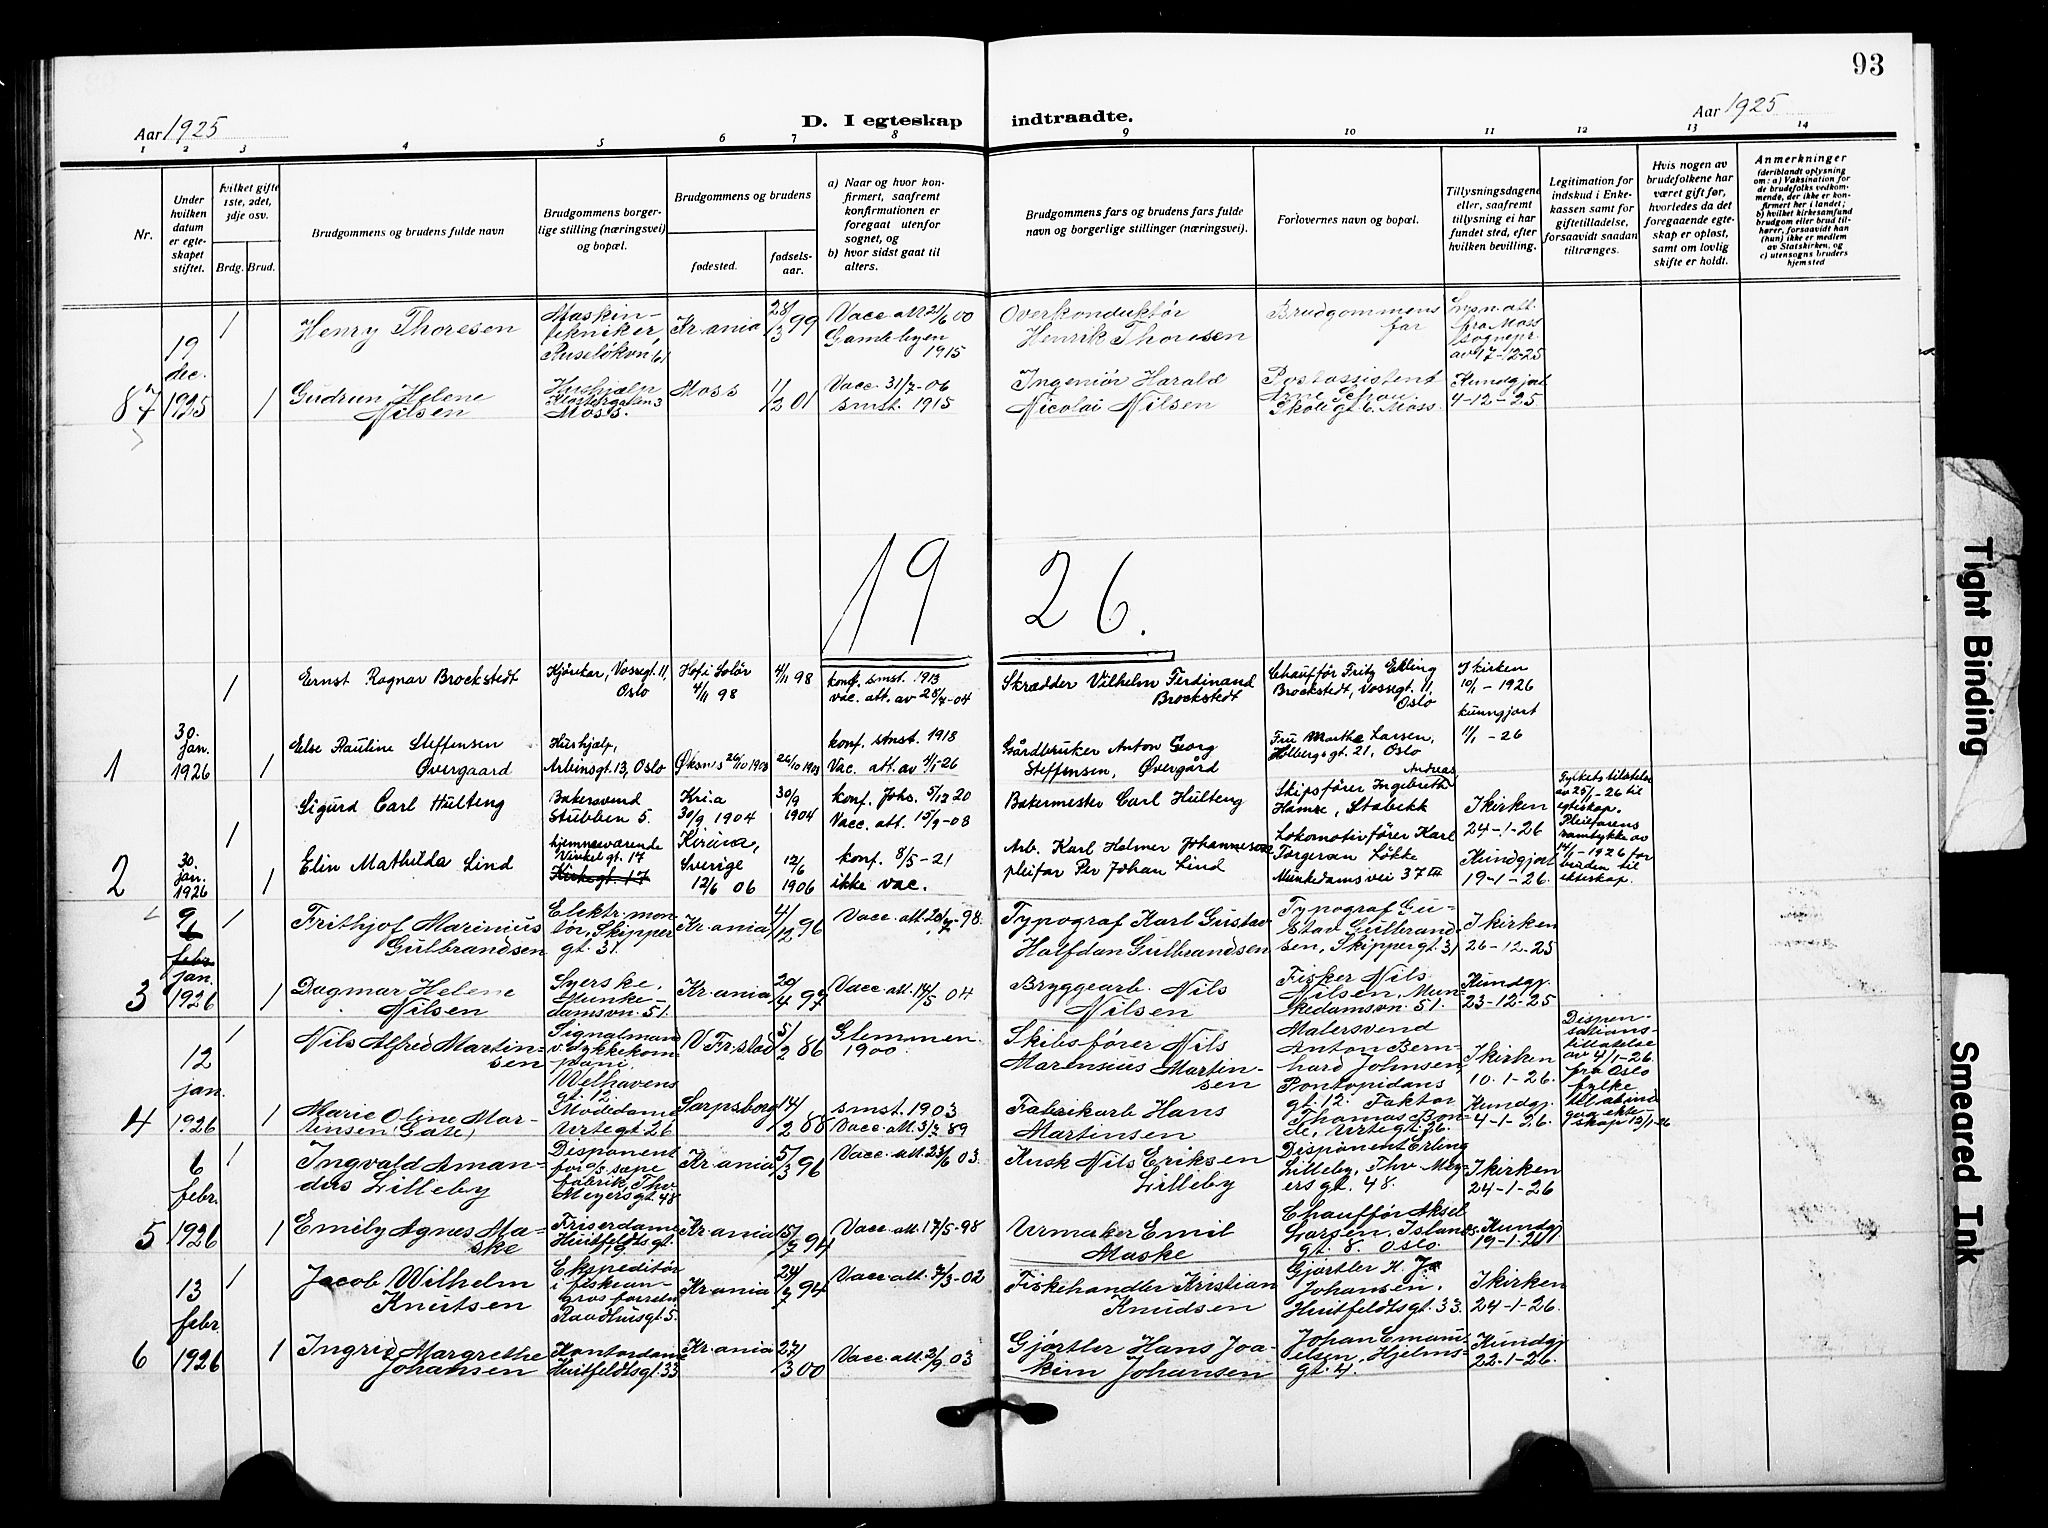 93
Aar 1925
D. I egteskap indtraadte.
Aar 1925
1 2 3 4 5 6 7 8 9 10 11 12 13 14
Nr.
Under
hvilken
datum
er egte-
skapet
stiftet.
hvilket gifte
1ste, 2det,
3dje osv.
Brdg. Brud.
Brudgommens og brudens fulde navn
Brudgommens borger-
lige stilling (næringsvei)
og bopæl.
Brudgommens og brudens
fødested.
fødsels-
aar.
a) Naar og hvor kon-
firmert, saafremt
konfirmationen er
foregaat utenfor
sognet, og
b) hvor sidst gaat til
alters.
Brudgommens fars og brudens fars fulde
navn og borgerlige stillinger (næringsvei).
Forlovernes navn og bopæl.
Tillysningsdagene
eller, saafremt
tillysning ei har
fundet sted, efter
hvilken bevilling.
Legitimation for
indskud i Enke-
kassen samt for
giftetilladelse,
forsaavidt saadan
tiltrænges.
Hvis nogen av
brudefolkene har
været gift før,
hvorledes da det
foregaaende egte-
skap er opløst,
samt om lovlig
skifte er holdt.
Anmerkninger
(deriblandt oplysning
om: a) Vaksination for
de brudefolks vedkom-
mende, der ikke er kon-
firmert her i landet;
b) hvilket kirkesamfund
brudgom eller brud til-
hører, forsaavidt han
(hun) ikke er medlem
av Statskirken, og
c) utensogns bruders
hjemsted
87
19
dec.
1925
1
Henry Thoresen
Maskin-
tekniker,
Ruseløkvn. 61
Kr.ania
28/3 99
Vacc. att 21/6 00
Gamlebyen
1915
Overkonduktør
Henrik Thoresen
Brudgommens
far
Lysn.att.
fra Moss
sognepr.
av 17-12-25
1
Gudrun Helene
Nilsen
Hushjælp
Klostergaten 3
Moss.
Moss
11/2 01
Vacc. 31/7-06
smst. 1915
Ingeniør Harald
Nicolai Nilsen
Postassistent
Arne Schou
Skolegt. 6. Moss.
Kundgjort
4-12-25
1926.
1
30.
jan.
1926
1
Ernst Ragnar Brockstedt
Kjørekar, Vossegt. 11,
Oslo
Hof i Solør
4/11 98
4/11 98
konf. smst. 1913
vac. att. av 28/7-04
Skrædder Vilhelm Ferdinand
Brockstedt
Chauffør Fritz Erling
Brockstedt, Vossegt. 11,
Oslo
I kirken
10/1-1926
kunngjort
11/1-26
1
Else Pauline Steffensen
Øvergaard
Hushjelp,
Arbinsgt. 13, Oslo
Øksnes 26/10 1903
26/10 1903
konf. smst. 1918
Vac. att. av 4/1-26
Gårdbruker Anton Georg
Steffensen, Øvergård
Fru Marthe Larsen,
Holbergsgt. 21, Oslo
2
30.
jan.
1926
1
Sigurd Carl Hulteng
Bakersvend
Stubben 5.
Kri.a
30/9 1904
30/9
1904
konf. Johs. 5/12 20
Vacc. att. 15/9-08
Bakermester Carl Hulteng
Skipsfører Ingebreth Andreas
Hamre, Stabekk
I kirken
24-1-26
Fylkets tilatelse
av 25/1-26 til
egteskap.
1
Elin Mathilda Lind
hjemmeværende
Vinkelgt. 17
Kirkegt. 17
Kiruna,
Sverige
12/6 06
12/6
1906
konf. 8/5-21
ikke vac.
Arb. Karl Holmer Johannesson
pleifar Per Johan Lind
Lokomotivfører Karl
Torgersen Løkke
Munkedamsvei 37 III
Kundgjort
19-1-26.
Pleifarens
samtykke av
14/1-1926 for
bruden til
ekteskap.
3
9/
febr.
jan.
1926
1
Frithjof Marinius
Gulbrandsen
Elektr. mon-
tør, Skipper
gt. 31.
Kr.ania
4/12 96
Vacc. att 20/7-98.
Typograf Karl Gustav
Halfdan Gulbrandsen
Typograf Gu-
stav Gulbrand-
sen, Skippergt. 31
I kirken
26-12-25
1
Dagmar Helene
Nilsen
Syerske,
Munke-
damsvn. 51.
Kr.ania
20/4 97
Vacc. att. 14/5 04
Bryggearb. Nils
Nilsen
Fisker Nils
Nilsen, Mun-
kedamsvn. 51.
Kundgj.
23-12-25
4
12
jan.
1926
1
Nils Alfred Martin-
sen
Signalmand
v. dykkekom-
pani.
Welhavens
gt. 12.
V Fr.stad
5/2 86
Glemmen
1900
Skibsfører Nils
Marensius Martin-
sen
Malersvend
Anton Bern-
hard Johnsen
Pontopidans
gt. 12.
I kirken
10.1-26.
Dispen-
sations-
tillatelse
av 4/1-26.
fra Oslo
fylke
til at ind
gaa ekte-
skap 12/1-26
1
Marie Oline Mar-
tinsen (Gate)
Modedame
Urtegt 26
Sarpsborg
14/2 88
smst. 1903
Vacc. att. 3/3 89
Fabrikarb Hans
Martinsen
Faktor
Thomas Bon-
de, Urtegt. 26.
Kundgj.
4-1-26.
5
6
febr.
1926
1
Ingvald Aman-
dus Lilleby
Disponent
for a/s såpe
fabrik, Thv.
Meyersgt. 48
Kr.ania
5/3 96
Vacc. att. 23/6 03.
Kusk Nils Eriksen
Lilleby
Disponent Erling
Lilleby, Thv. Mey-
ersgt. 48.
I kirken
24-1-26
1
Emily Agnes Ma-
ske
Friserdame
Huitfeldtsgt.
Kr.ania
15/7 94
Vacc. att. 17/5-98
Urmaker Emil
Maske
Chauffør Aksel
Larsen, Islands
gt. 8. Oslo.
Kundgj
19-1-26
6
13
febr.
1926
1
Jacob Wilhelm
Knutsen
Ekspeditør
i fiskean-
gros forretn
Raadhusgt. 5.
Kr.ania
24/7 94
Vacc. att. 7/3-02
Fiskehandler Kristian
Knudsen
Gjørtler H. Jo
Johansen,
Huitfeldtsgt. 33.
I kirken
24-1-26.
1
Ingrid Margrethe
Johansen
Kontordame
Huitfeldtsgt. 33
Kr.ania
27/3 00
Vacc. att. 2/9 03
Gjørtler Hans Joa-
kim Johansen
Johan Emanu-
elsen, Hjelms-
gt. 4.
Kundgj
22-1-26.
Tight Binding
Smeared Ink